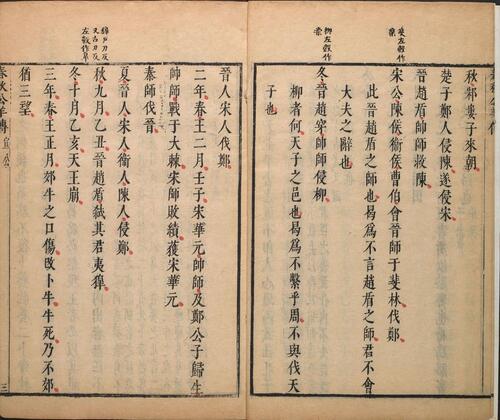 秋邾婁子來朝
楚子鄭人侵陳遂侵宋
晉趙盾帥師救陳
斐左穀作
棐
宋公陳侯衞侯曹伯會晉師于斐林伐鄭
此晉趙盾之師也曷爲不言趙盾之師君不會
大夫之辭也
冬晉趙穿帥師侵柳
柳左穀作
崇
柳者何天子之邑也曷爲不繫乎周不與伐天
子也
晉人宋人伐鄭
二年春王二月壬子宋華元帥師及鄭公子歸生
帥師戰于大棘宋師敗績獲宋華元
秦師伐晉
夏晉人宋人衞人陳人侵鄭
秋九月乙丑晉趙盾弑其君夷獋
獋戶刀反
又古刀反
左穀作皐
冬十月乙亥天王崩
三年春王正月郊牛之口傷改卜牛牛死乃不郊
猶三望
春秋公羊傳 宣公 三